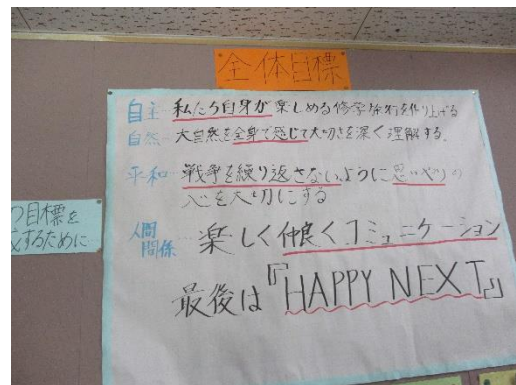 全体目標
自主…私たち自身が楽しめる修学旅行を作り上げる
自然…大自然を全身で感じて大切さを深く理解する。
平和…戦争を繰り返さないように思いやりの
心を大切にする
人間関係…楽しく仲良くコミュニケーション
最後は『HAPPY NEXT』
の目標を
するために